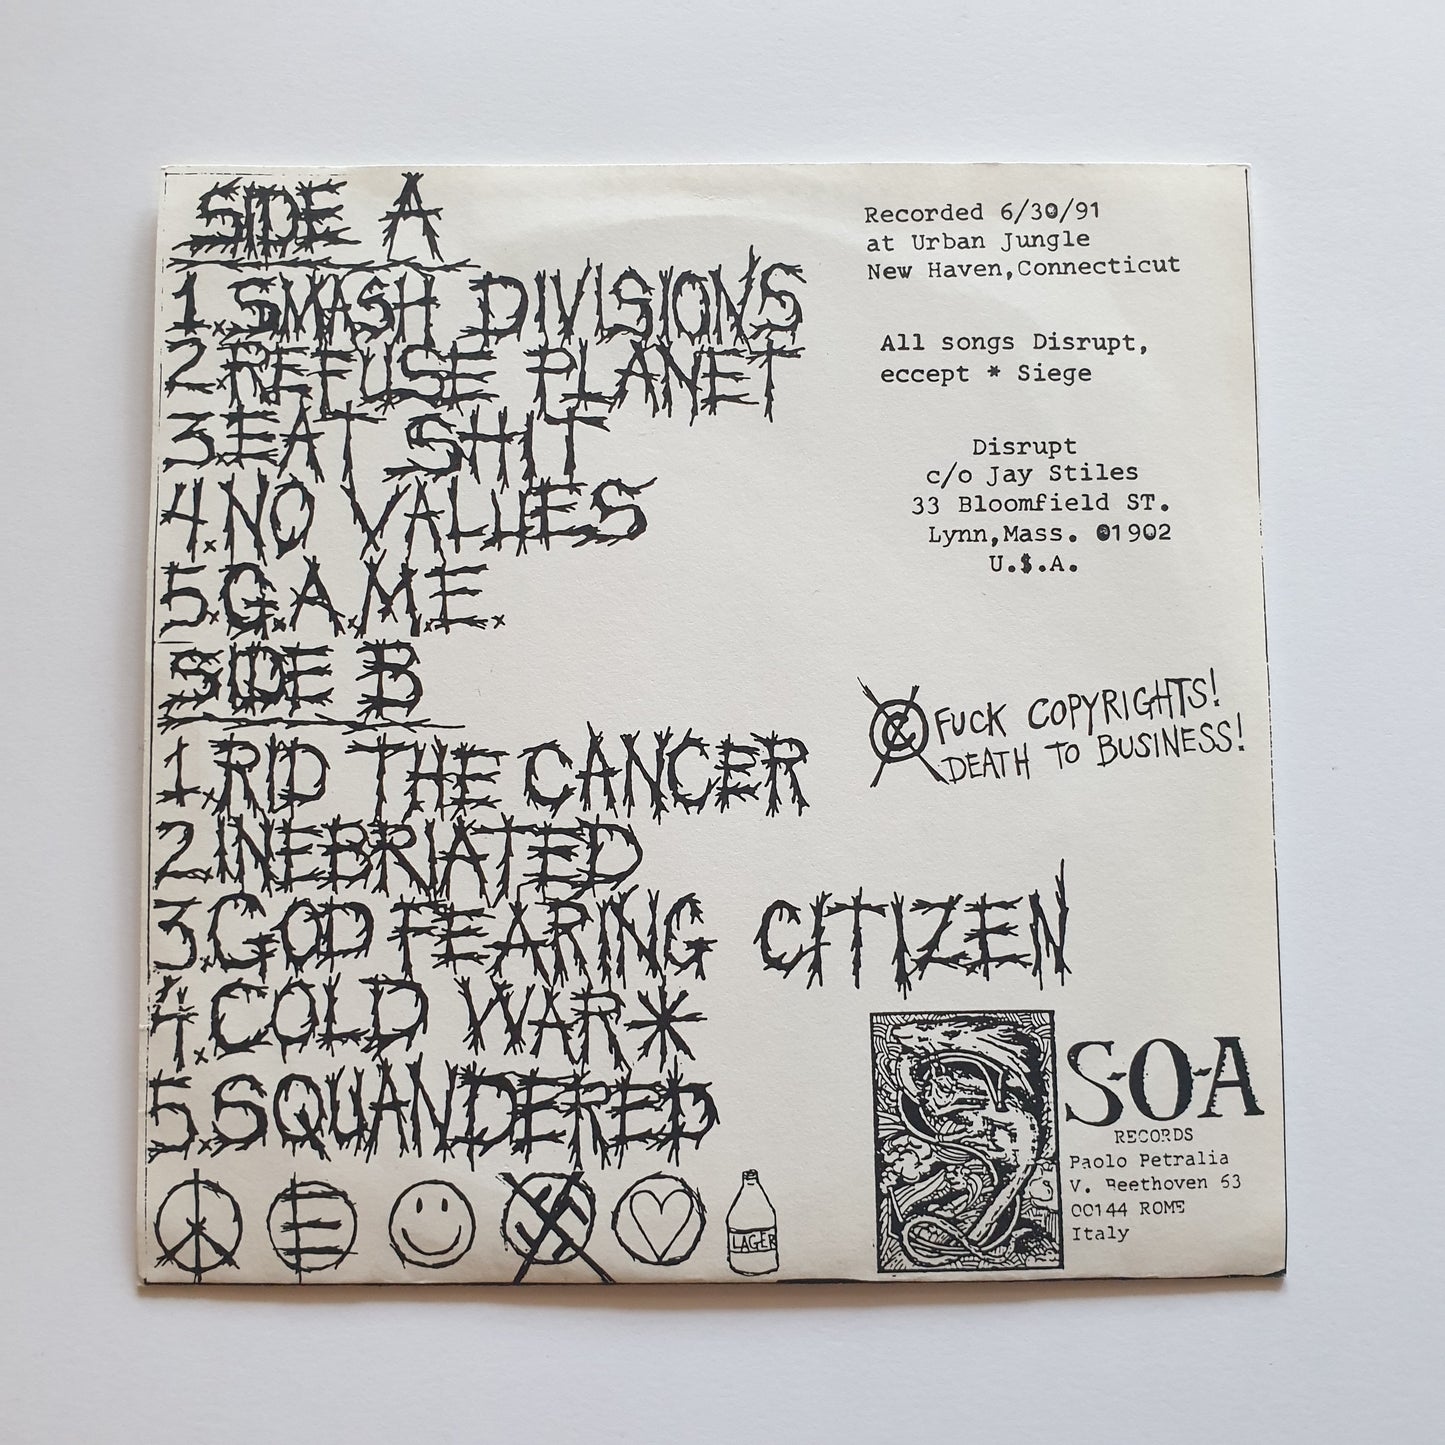 SIDE A
1. SMASH DIVISIONS
2. REFUSE PLANET
3. EAT SHIT
4. NO VALUES
5. G.A.M.E.
SIDE B
1. RID THE CANCER
2. INEBRIATED
3. GOD FEARING CITIZEN
4. COLD WAR*
5. SQUANDERED
LAGER
Recorded 6/30/91
at Urban Jungle
New Haven,Connecticut
All songs Disrupt,
eccept * Siege
Disrupt
c/o Jay Stiles
33 Bloomfield ST.
Lynn,Mass. 01902
U.$.A.
FUCK COPYRIGHTS!
DEATH TO BUSINESS!
S-O-A
RECORDS
Paolo Petralia
V. Beethoven 53
00144 ROME
Italy